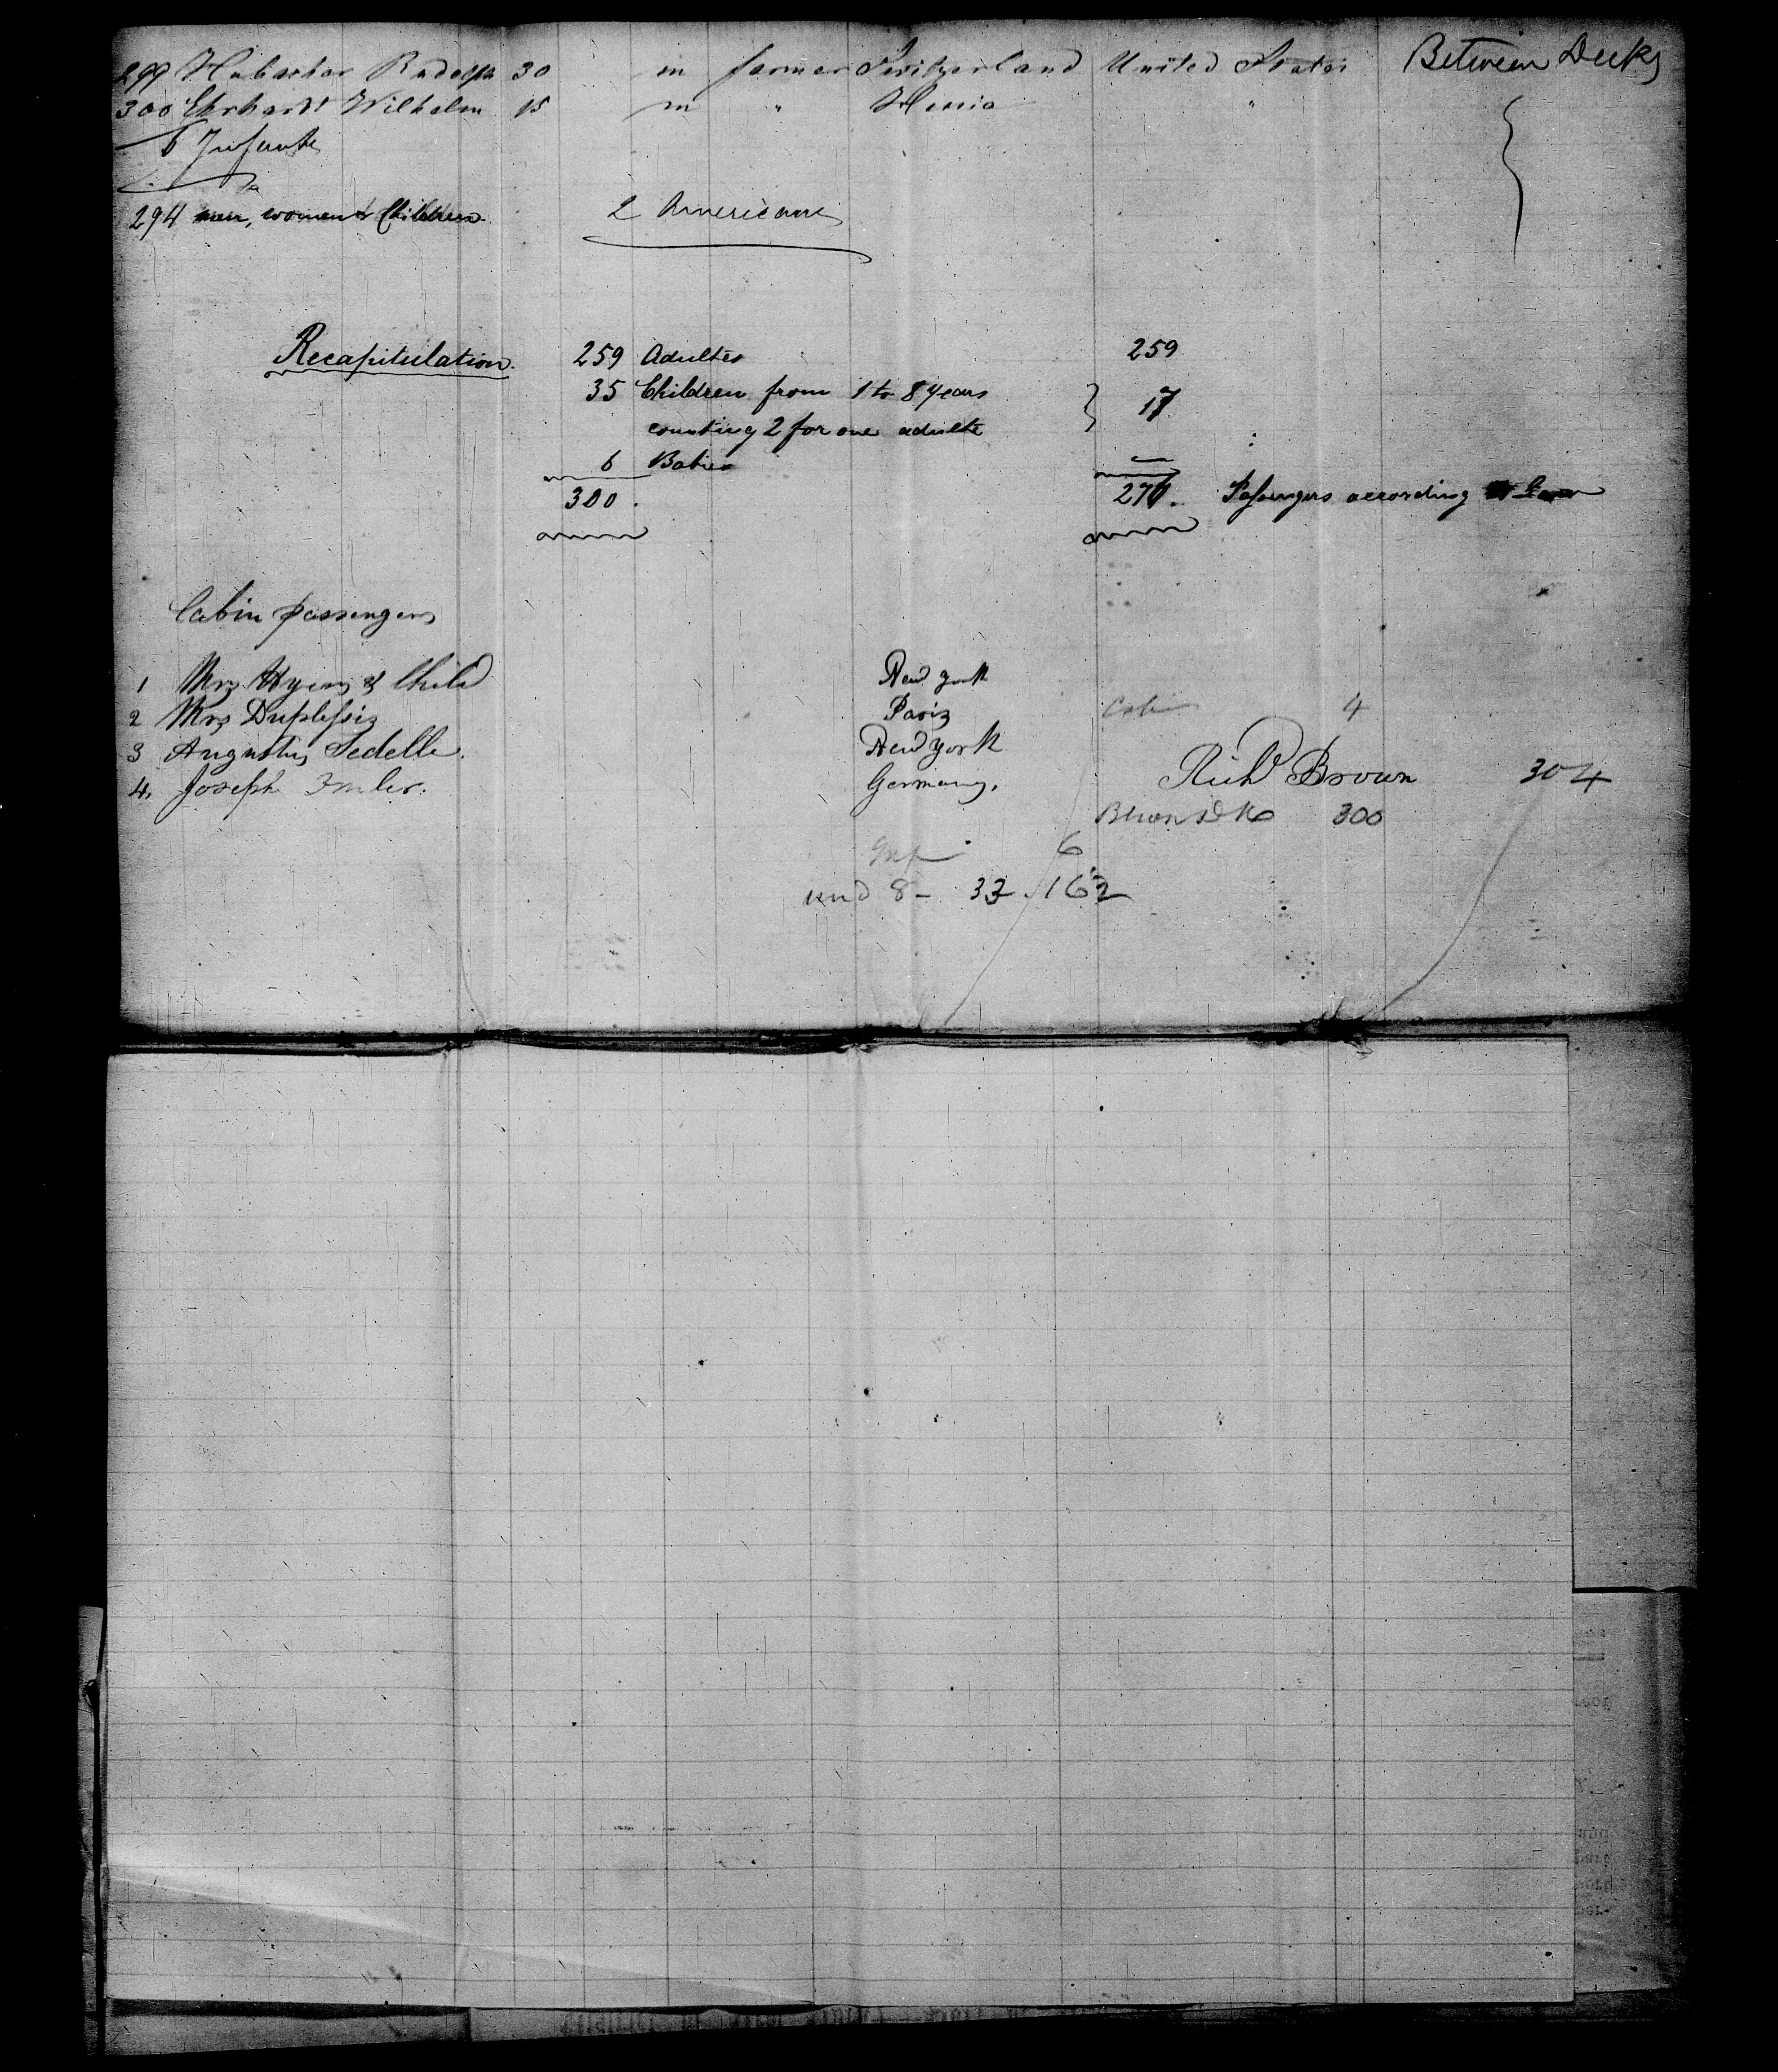 299 Hubacher Rudolph 30 m farmer Switzerland United States Between Decks
300 Ehrhardt Wilhelm 15 m " Hessia "
6 Infants
294 men, women & Children 2 Americans
Recapitulation. 259 Adultes 259
35 Children from 1 to 8 years 17
counting 2 for one adulte
6 Babies —
300. 276. Passengers according
Cabin passengers
1 Mrs & Child New York
2 Mrs Duplessis Paris Cabin 4
3 Augustus Sedelle. New York
4. Joseph Germany. Richd Brown 304
300
Inf 6
und 8 - 33 16½